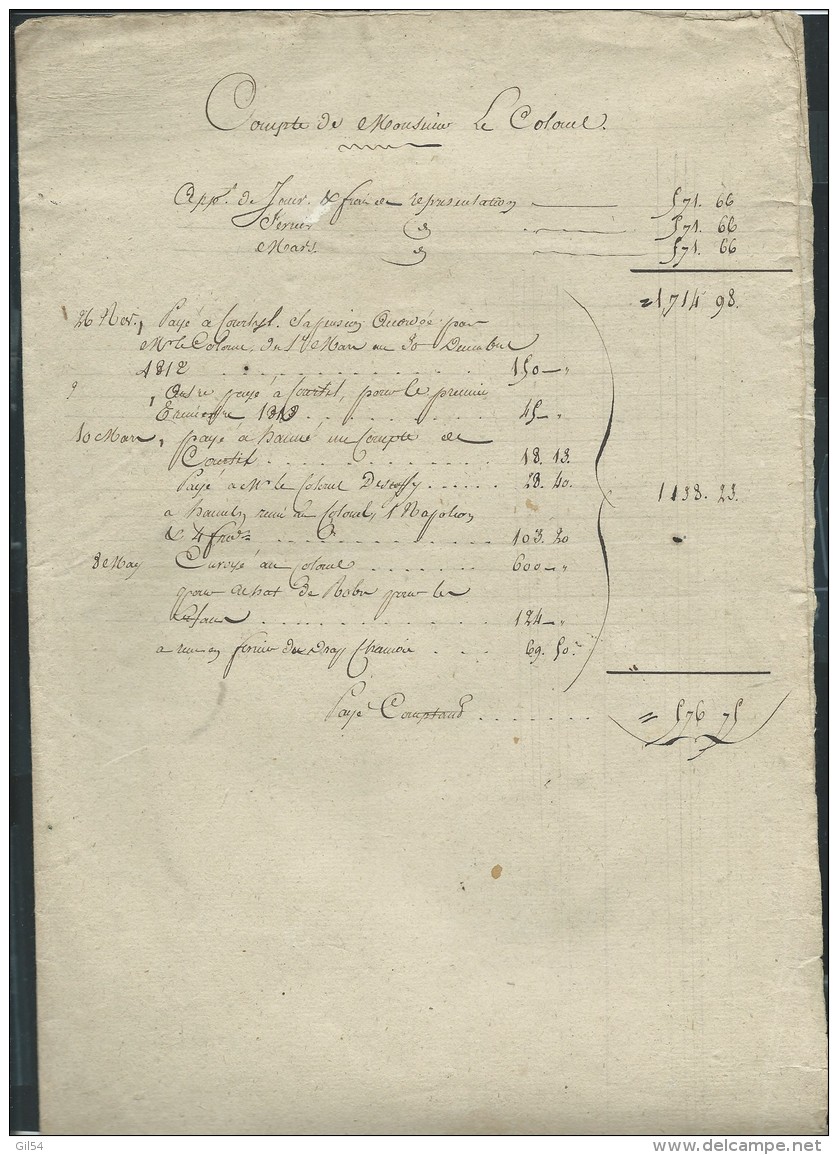 Compte de Monsieur Le Colonel.
App.ts de Janv. & frais de représentation 571. 66
Fevrier d 571. 66
Mars d 571. 66
= 1714 98.
26 Nov., Payé à Courtil. sa pension par
Mr. le Colonel, du 1er Mars au 30 Decembre
1812 . . . . . . . . . . 150 — "
, Outre payé à Courtil, pour le premier
1813 . . . . . . . . . 45 — "
10 Mars, payé à au Compte de
Courtil . . . . . . . . . 18. 13.
Payé à Mr. le Colonel . . . . . 28. 40.
1138. 23.
a remis au Colonel, 1 Napoléon
& 4 . . . . . . . . . . 103. 20
8 May Envoyé au Colonel . . . . . . 600 — "
pour achat de Robes pour les
. . . . . . . . . . 124 — "
drap Chamois . . . 69. 50.
Payé Comptant . . . . . . = 576 75
Gil54
www.delcampe.net